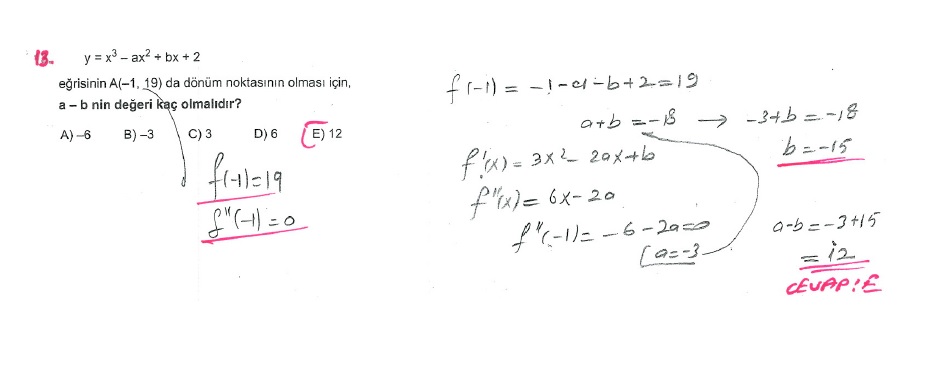 13. y = x³ – ax² + bx + 2
eğrisinin A(–1, 19) da dönüm noktasının olması için,
a – b nin değeri kaç olmalıdır?
A) –6 B) –3 C) 3 D) 6 E) 12
f(-1)=19
f''(-1)=0
f(-1) = -1-a-b+2=19
a+b = -18 → -3+b = -18
b = -15
f'(x) = 3x²- 2ax+b
f''(x) = 6x-2a
f''(-1) = -6-2a=0
a=-3
a-b = -3+15
= 12
CEVAP: E